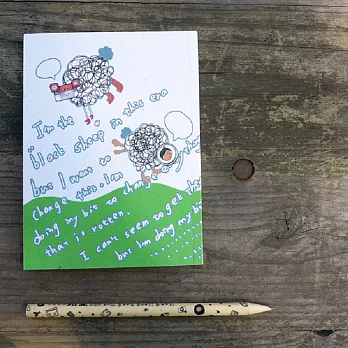 I'm the
"black sheep in this era
but I want to
change this. I'm
doing my bit to change
that is rotten.
I can't seem to get the
but I'm doing my bit